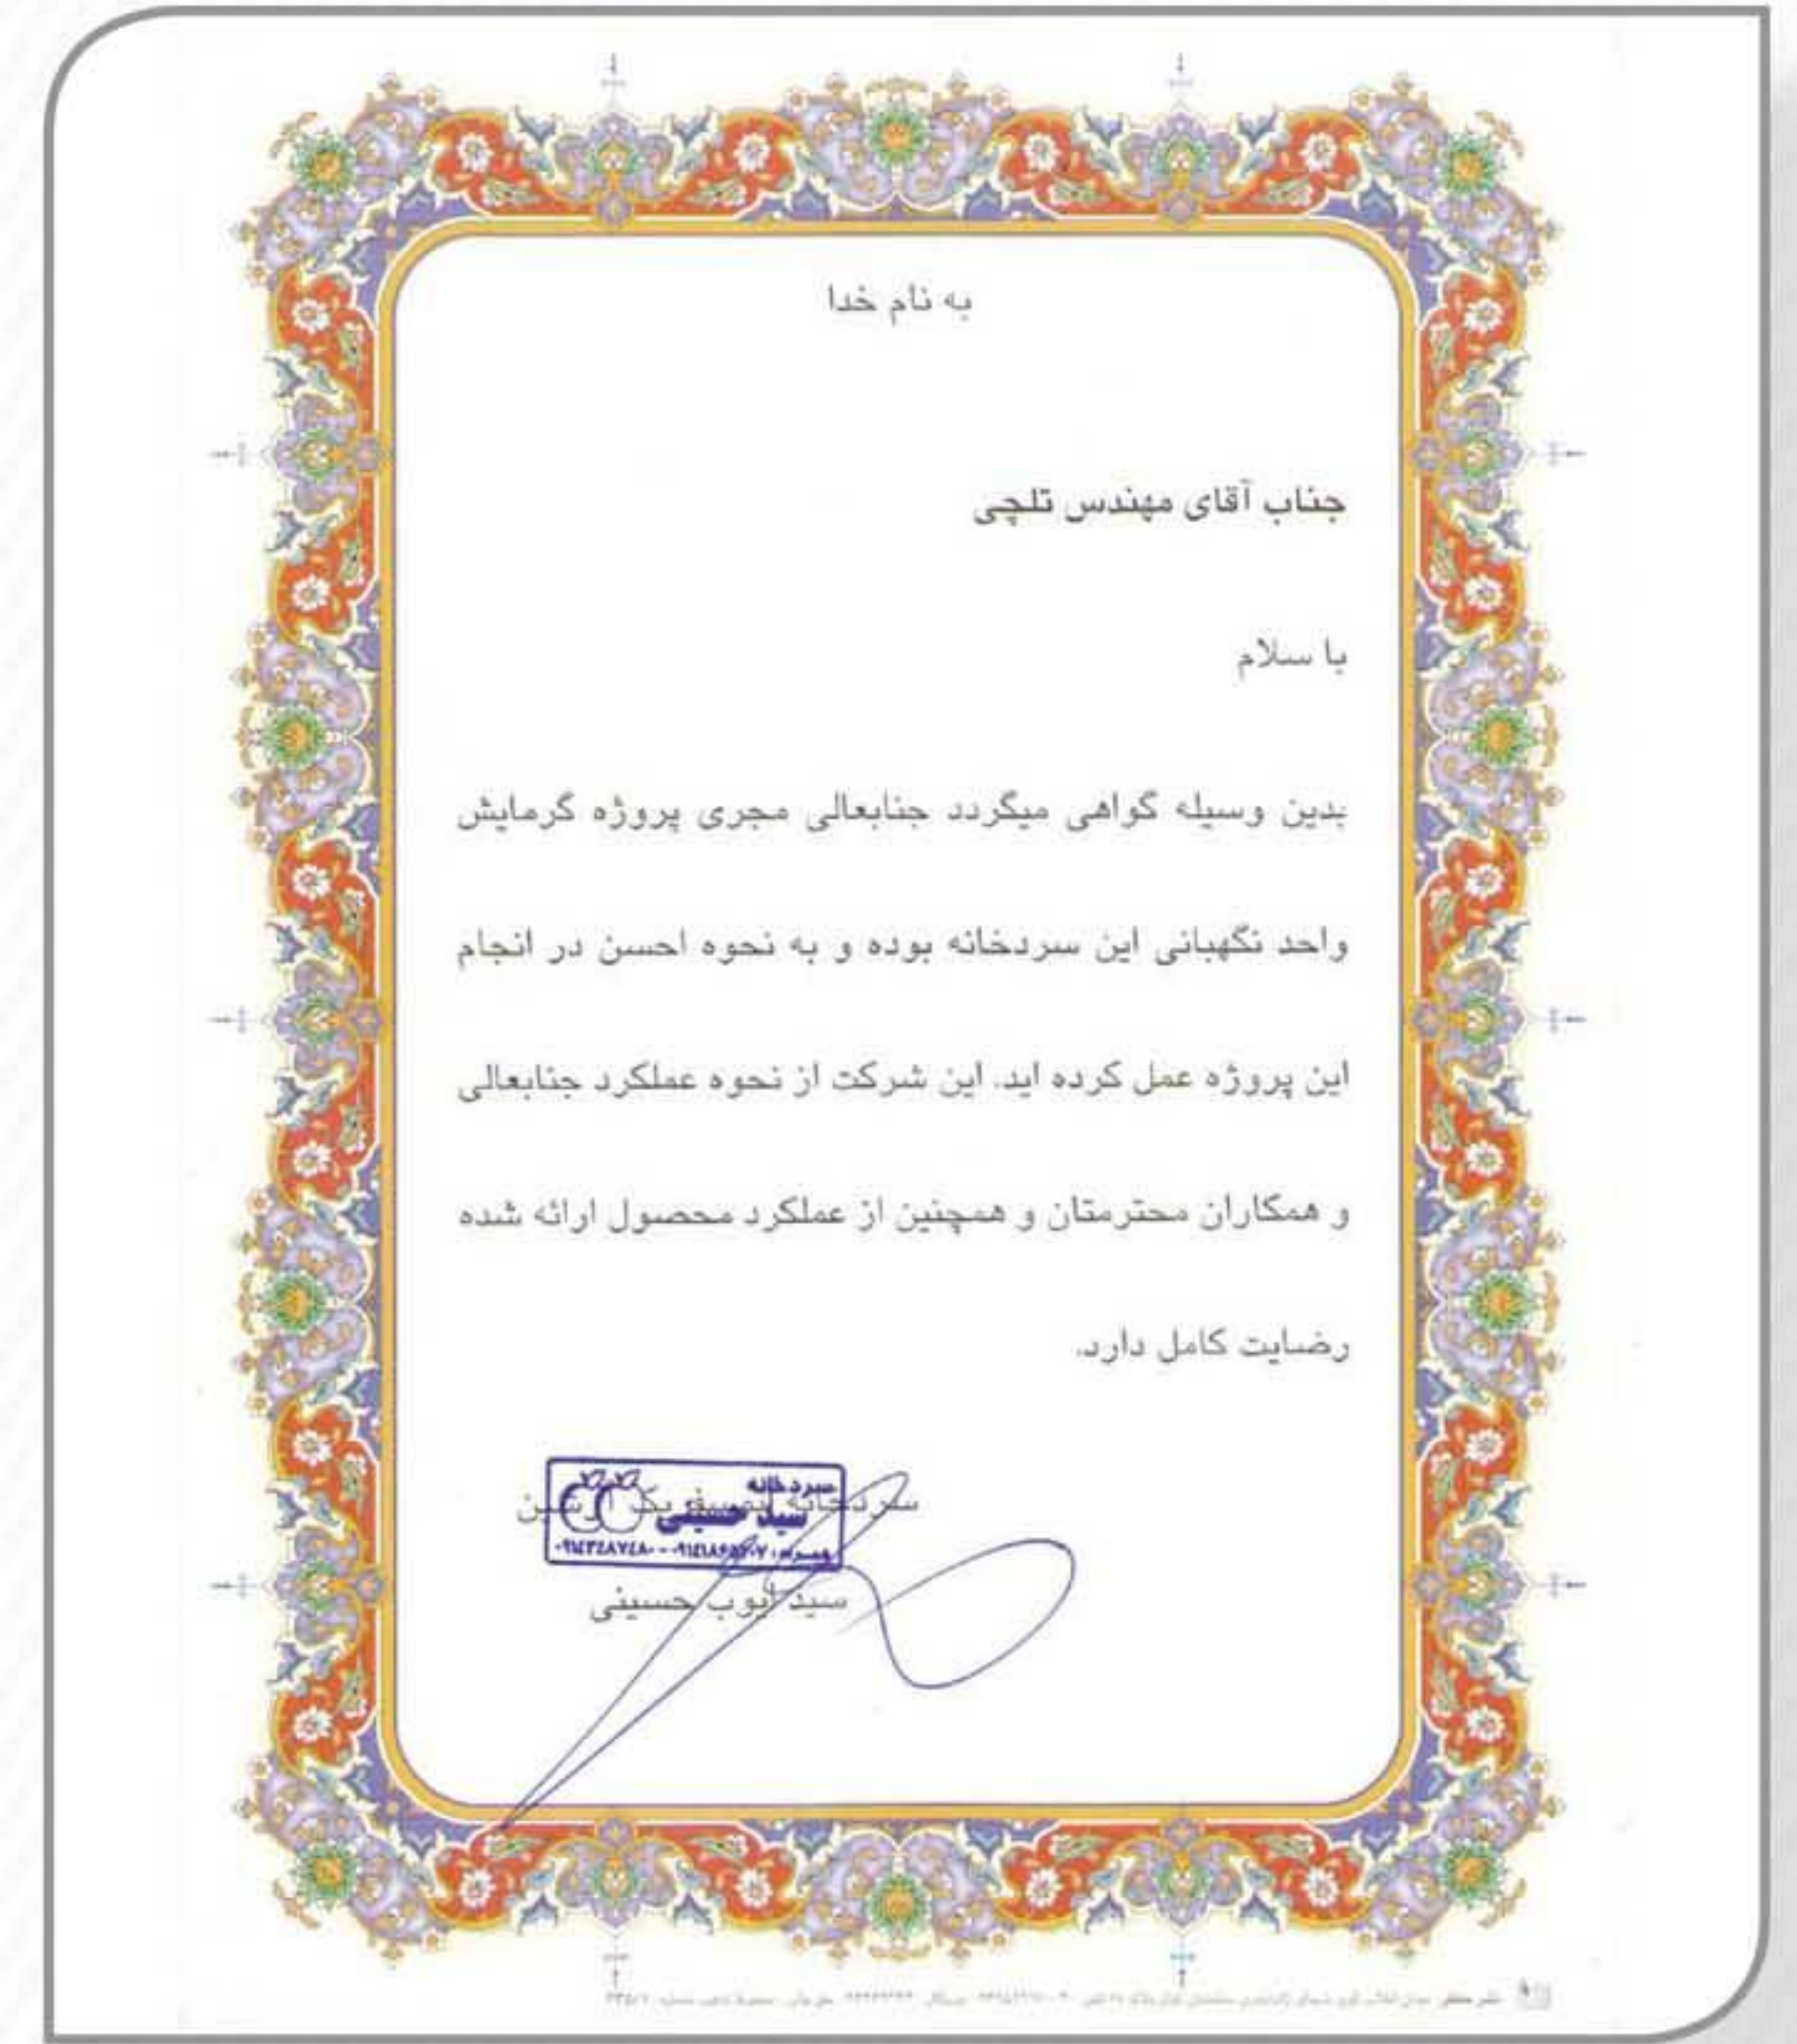 به نام خدا
جناب آقای مهندس تلچی
با سلام
بدین وسیله گواهی میگردد جنابعالی مجری پروژه گرمایش
واحد نگهبانی این سردخانه بوده و به نحوه احسن در انجام
این پروژه عمل کرده اید. این شرکت از نحوه عملکرد جنابعالی
و همکاران محترمتان و همچنین از عملکرد محصول ارائه شده
رضایت کامل دارد.
سردخانه
سردخانه
سید حسینی
سید ایوب حسینی